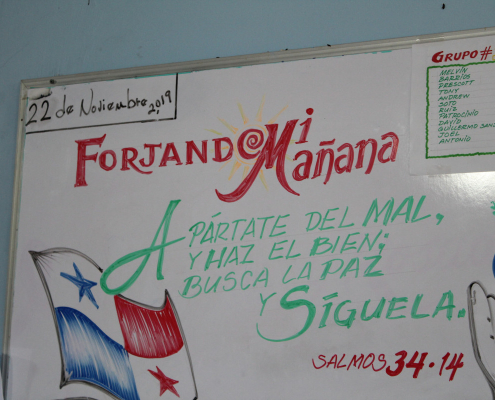 22 de Noviembre 2,019
FORJANDO Mi Mañana
APÁRTATE DEL MAL,
Y HAZ EL BIEN;
BUSCA LA PAZ
Y SÍGUELA.
SALMOS 34·14
GRUPO #
MELVÍN
BARRÍOS
PRESCOTT
TONY
ANDREW
SOTO
RUÍZ
PATROCÍNIO
DAVÍD
GUILLERMO SANZ
JOEL
ANTONIO